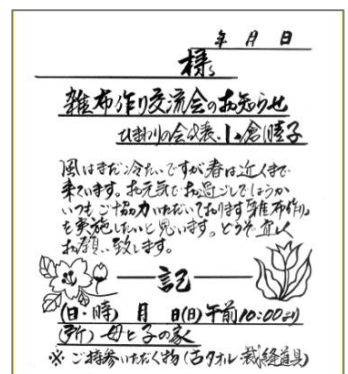 年 月 日
様
雑布作り交流会のお知らせ
ひまわりの会代表 小倉睦子
風はまだ冷たいですが春は近くまで
来ています。お元気でお過ごしでしょうか
いつもご協力いただいております「雑布作り」
を実施したいと思います。どうぞ宜しく
お願い致します。
記
(日・時) 月 日(日)午前10:00より
(所) 母と子の家
※ ご持参いただく物(古タオル 裁縫道具)